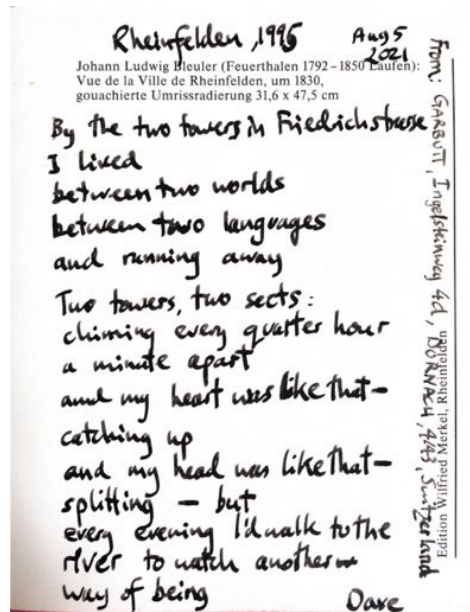 Rheinfelden, 1995
Aug 5
2021
Johann Ludwig Bleuler (Feuerthalen 1792–1850 Laufen):
Vue de la Ville de Rheinfelden, um 1830,
gouachierte Umrissradierung 31,6 x 47,5 cm
By the two towers in Friedrichstrasse
I lived
between two worlds
between two languages
and running away
Two towers, two sects:
chiming every quarter hour
a minute apart
and my heart was like that—
catching up
and my head was like that—
splitting — but
every evening I'd walk to the
river to watch another
way of being
Dave
From: GARBUTT, Ingelsteinweg 4d, DORNACH, 4143, Switzerland
Edition Wilfried Merkel, Rheinfelden